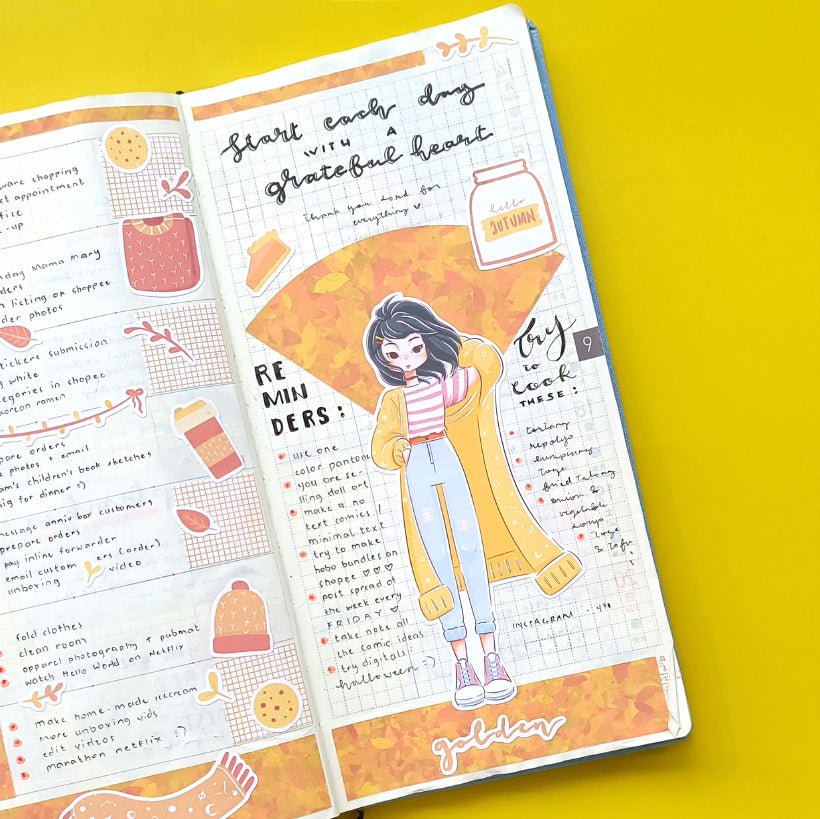 ware shopping
appointment
-up
day Mama mary
listing or shopee
der photos
stickers submission
white
categories in shopee
ramen
pare orders
photos + email
am's children's book sketches
for dinner :)
message anniv box customers
prepare orders
pay inline forwarder
email custom ers (order)
unboxing video
fold clothes
clean room
apparel photography + pubmat
watch Hello World on Netflix
make home-made icecream
more unboxing vids
edit videos
marathon netflix :)
Start each day
WITH A
grateful heart
thank you Lord for
everything ♡
hello
AUTUMN
RE
MIN
DERS:
use one
color pantone
you are se-
lling doll art
make a no
text comics /
minimal text
try to make
hobo bundles on
shopee ♡♡♡
post spread of
the week every
FRIDAY ♡
take note all
the comic ideas
try digitals
halloween :)
try
to
cook
THESE:
9
tortang
repolyo
fried talong
onion &
vegetable
soup
& tofu
INSTAGRAM
golden